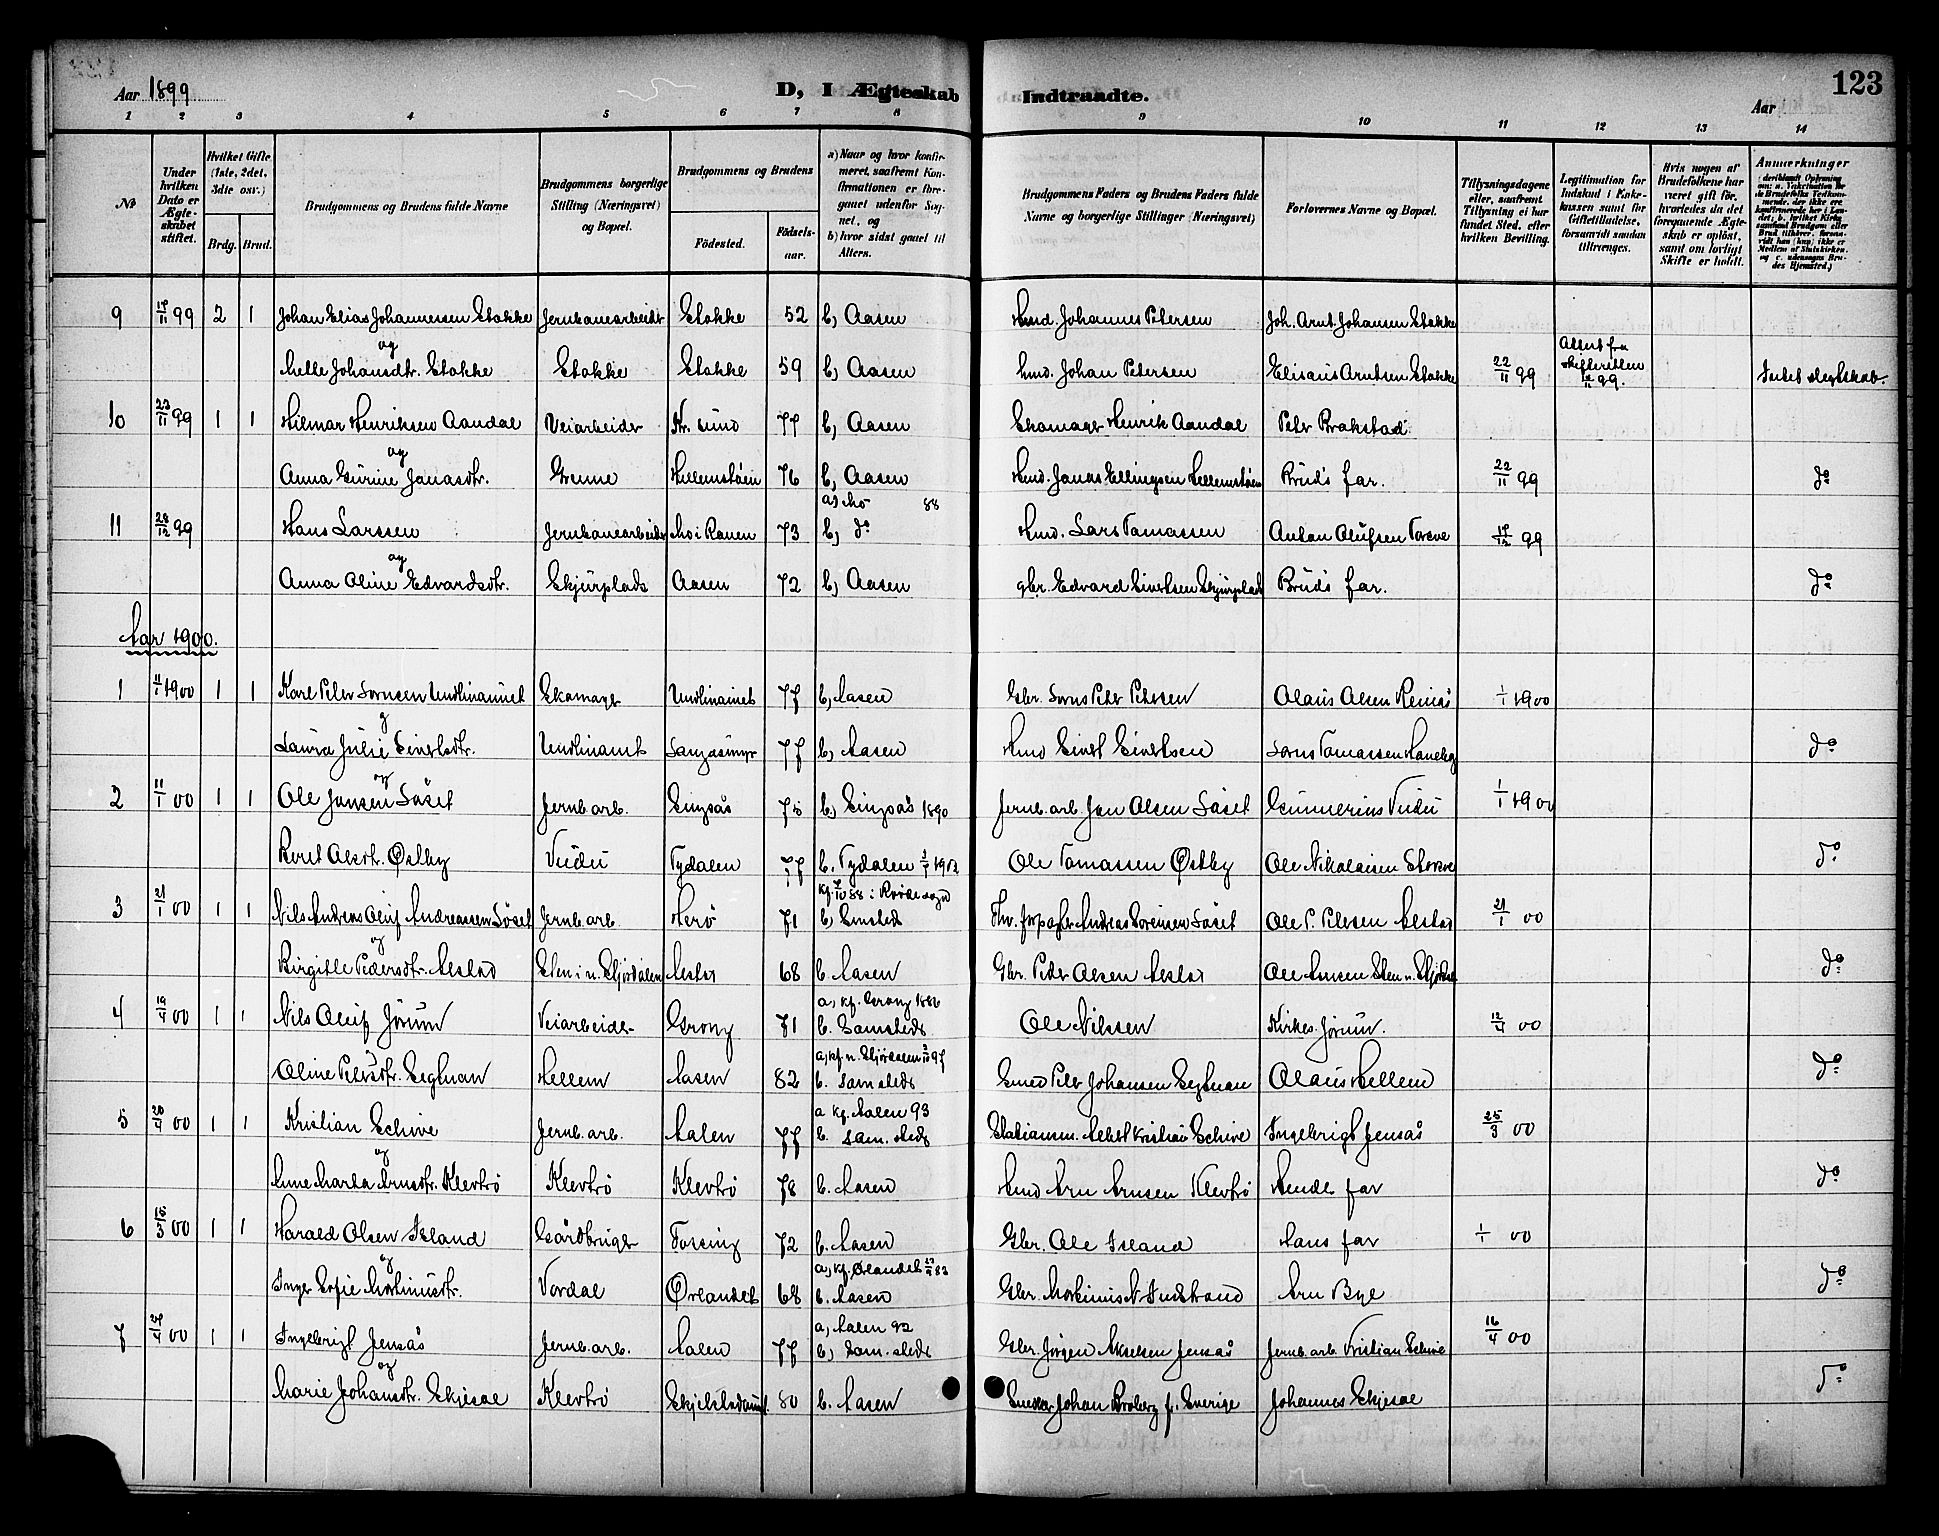 Aar 1899 D, I Ægteskab Indtraadte. Aar 123
1 2 3 4 5 6 7 8 9 10 11 12 13 14
No
Under hvilken Dato er Ægteskabet stiftet.
Hvilket Gifte (1ste, 2det, 3die osv.)
Brdg. Brud.
Brudgommens og Brudens fulde Navne
Brudgommens borgerlige Stilling (Næringsvei) og Bopæl.
Brudgommens og Brudens
Födested. Födselsaar.
a) Naar og hvor konfirmeret, saafremt Konfirmationen er foregaaet udenfor Sognet, og
b) hvor sidst gaaet til Alters.
Brudgommens Faders og Brudens Faders fulde Navne og borgerlige Stillinger (Næringsvei)
Forlovernes Navne og Bopæl.
Tillysningsdagene eller, saafremt Tillysning ei har fundet Sted, efter hvilken Bevilling.
Legitimation for Indskud i Enkekassen samt for Giftetilladelse, forsaavidt saadan tiltrænges.
Hvis nogen af Brudefolkene har været gift för, hvorledes da det foregaaende Ægteskab er oplöst, samt om lovligt Skifte er holdt.
Anmærkninger
9 17/11 99 2 1 Johan Elias Johannessen Stokke Jernbanearbeider Stokke 52 b, Aasen Hmd. Johannes Petersen Joh. Arnt Johansen Stokke
og
Mette Johansdtr. Stokke Stokke Stokke 59 b, Aasen Hmd. Johan Petersen Elisæus Arntsen Stokke 22/11 99 Attest fra skifteretten 99. Intet slegtskab.
10 23/11 99 1 1 Hilmar Henriksen Aandal Veiarbeider Kr. sund 77 b, Aasen Skomager Henrik Aandal Peter Brakstad
og
Anna Gurine Jonasdtr. Grenne Hellemstøen 76 b, Aasen Hmd. Jonas Ellingsen Hellemstøen Bruds far. 22/11 99 do
11 28/12 99 Hans Larssen Jernbanearbeider Mo i Ranen 73 a) Mo 88 b, do Hmd. Lars Tomassen Anton Olufsen Torsve 17/12 99
og
Anna Oline Edvardsdtr. Skjurplads Aasen 72 b, Aasen gbr. Edvard Sivertsen Skjurplads Bruds far. do
Aar 1900.
1 11/1 1900 1 1 Karl Peter Sornsen Undlinaunet Skomager Undlinaunet 77 b, Aasen Gbr. Sorns Peter Petersen Olaus Olsen Reinås 1/1 1900
og
Laura Julie Sivertsdtr. Undlinaunet 77 b, Aasen Hmd Sivert Sivertsen Sorns Tomassen do
2 11/1 00 1 1 Ole Jonsen Løset Jernb. arb. Singsås 75 b, Singsås 1890 Jernb. arb. Jon Olsen Løset Gunnerius Vudu 1/1 1900
og
Beret Olsdtr. Østby Vudu Tydalen 77 b. Tydalen Ole Tomassen Østby Ole Nikolaisen Storsve do
3 21/1 00 1 1 Nils Andreas Oluf Andreassen Løset Jernb. arb. Herø 71 b, Samsteds Andreas Sorensen Løset Ole P. Petersen Aelstad 21/1 00
og
Birgitte Pedersdtr. Aelstad Sten i n. Stjørdalen Aelstad 68 b. Aasen Gbr. Peter Olsen Aelstad Ole Arnsen Sten n. Stjørdal do
4 19/4 00 1 1 Nils Oluf Jørum Veiarbeider Grong 71 a, kf. Grong 1886 b. Samsteds Ole Nilssen Kirkes. Jørum. 12/4 00
Oline Petersdtr. Segtnan Hellem Aasen 82 a, kf. n. Stjørdalen 97 b. Samsteds Smed Peter Johansen Segtnan Olaus Hellem do
5 20/4 00 1 1 Kristian Schive Jernb. arb. Aalen 77 a kf. Aalen 93 b. Sam. steds Stationsm. Kristian Schive Ingebrigt Jensås 25/3 00
og
Ane Marta Arnsdtr. Klevtrø Klevtrø Klevtrø 78 b. Aasen Hmd Arn Arnsen Klevtrø Hendes far do
6 15/3 00 1 1 Harald Olsen Island Gårdbruger Forsing 72 b. Aasen Gbr. Ole Island Hans far 1/1 00
og
Inger Sofie Mortinusdtr. Vordal Ørlandet 68 a, kf. Ørlandet 83 b. Aasen Gbr. Mortinus Arn Bye do
7 27/4 00 1 1 Ingebrigt Jensås Jernb. arb. Aalen 77 a, Aalen 92 b, Sam. steds Gbr. Jørgen Akselsen Jensås Jernb. arb. Kristian Schive 16/4 00
og
Marie Johansdtr. Skjesæ Klevtrø 80 b. Aasen Snekker Johan Broberg f. Sverige Johannes Skjesæ do